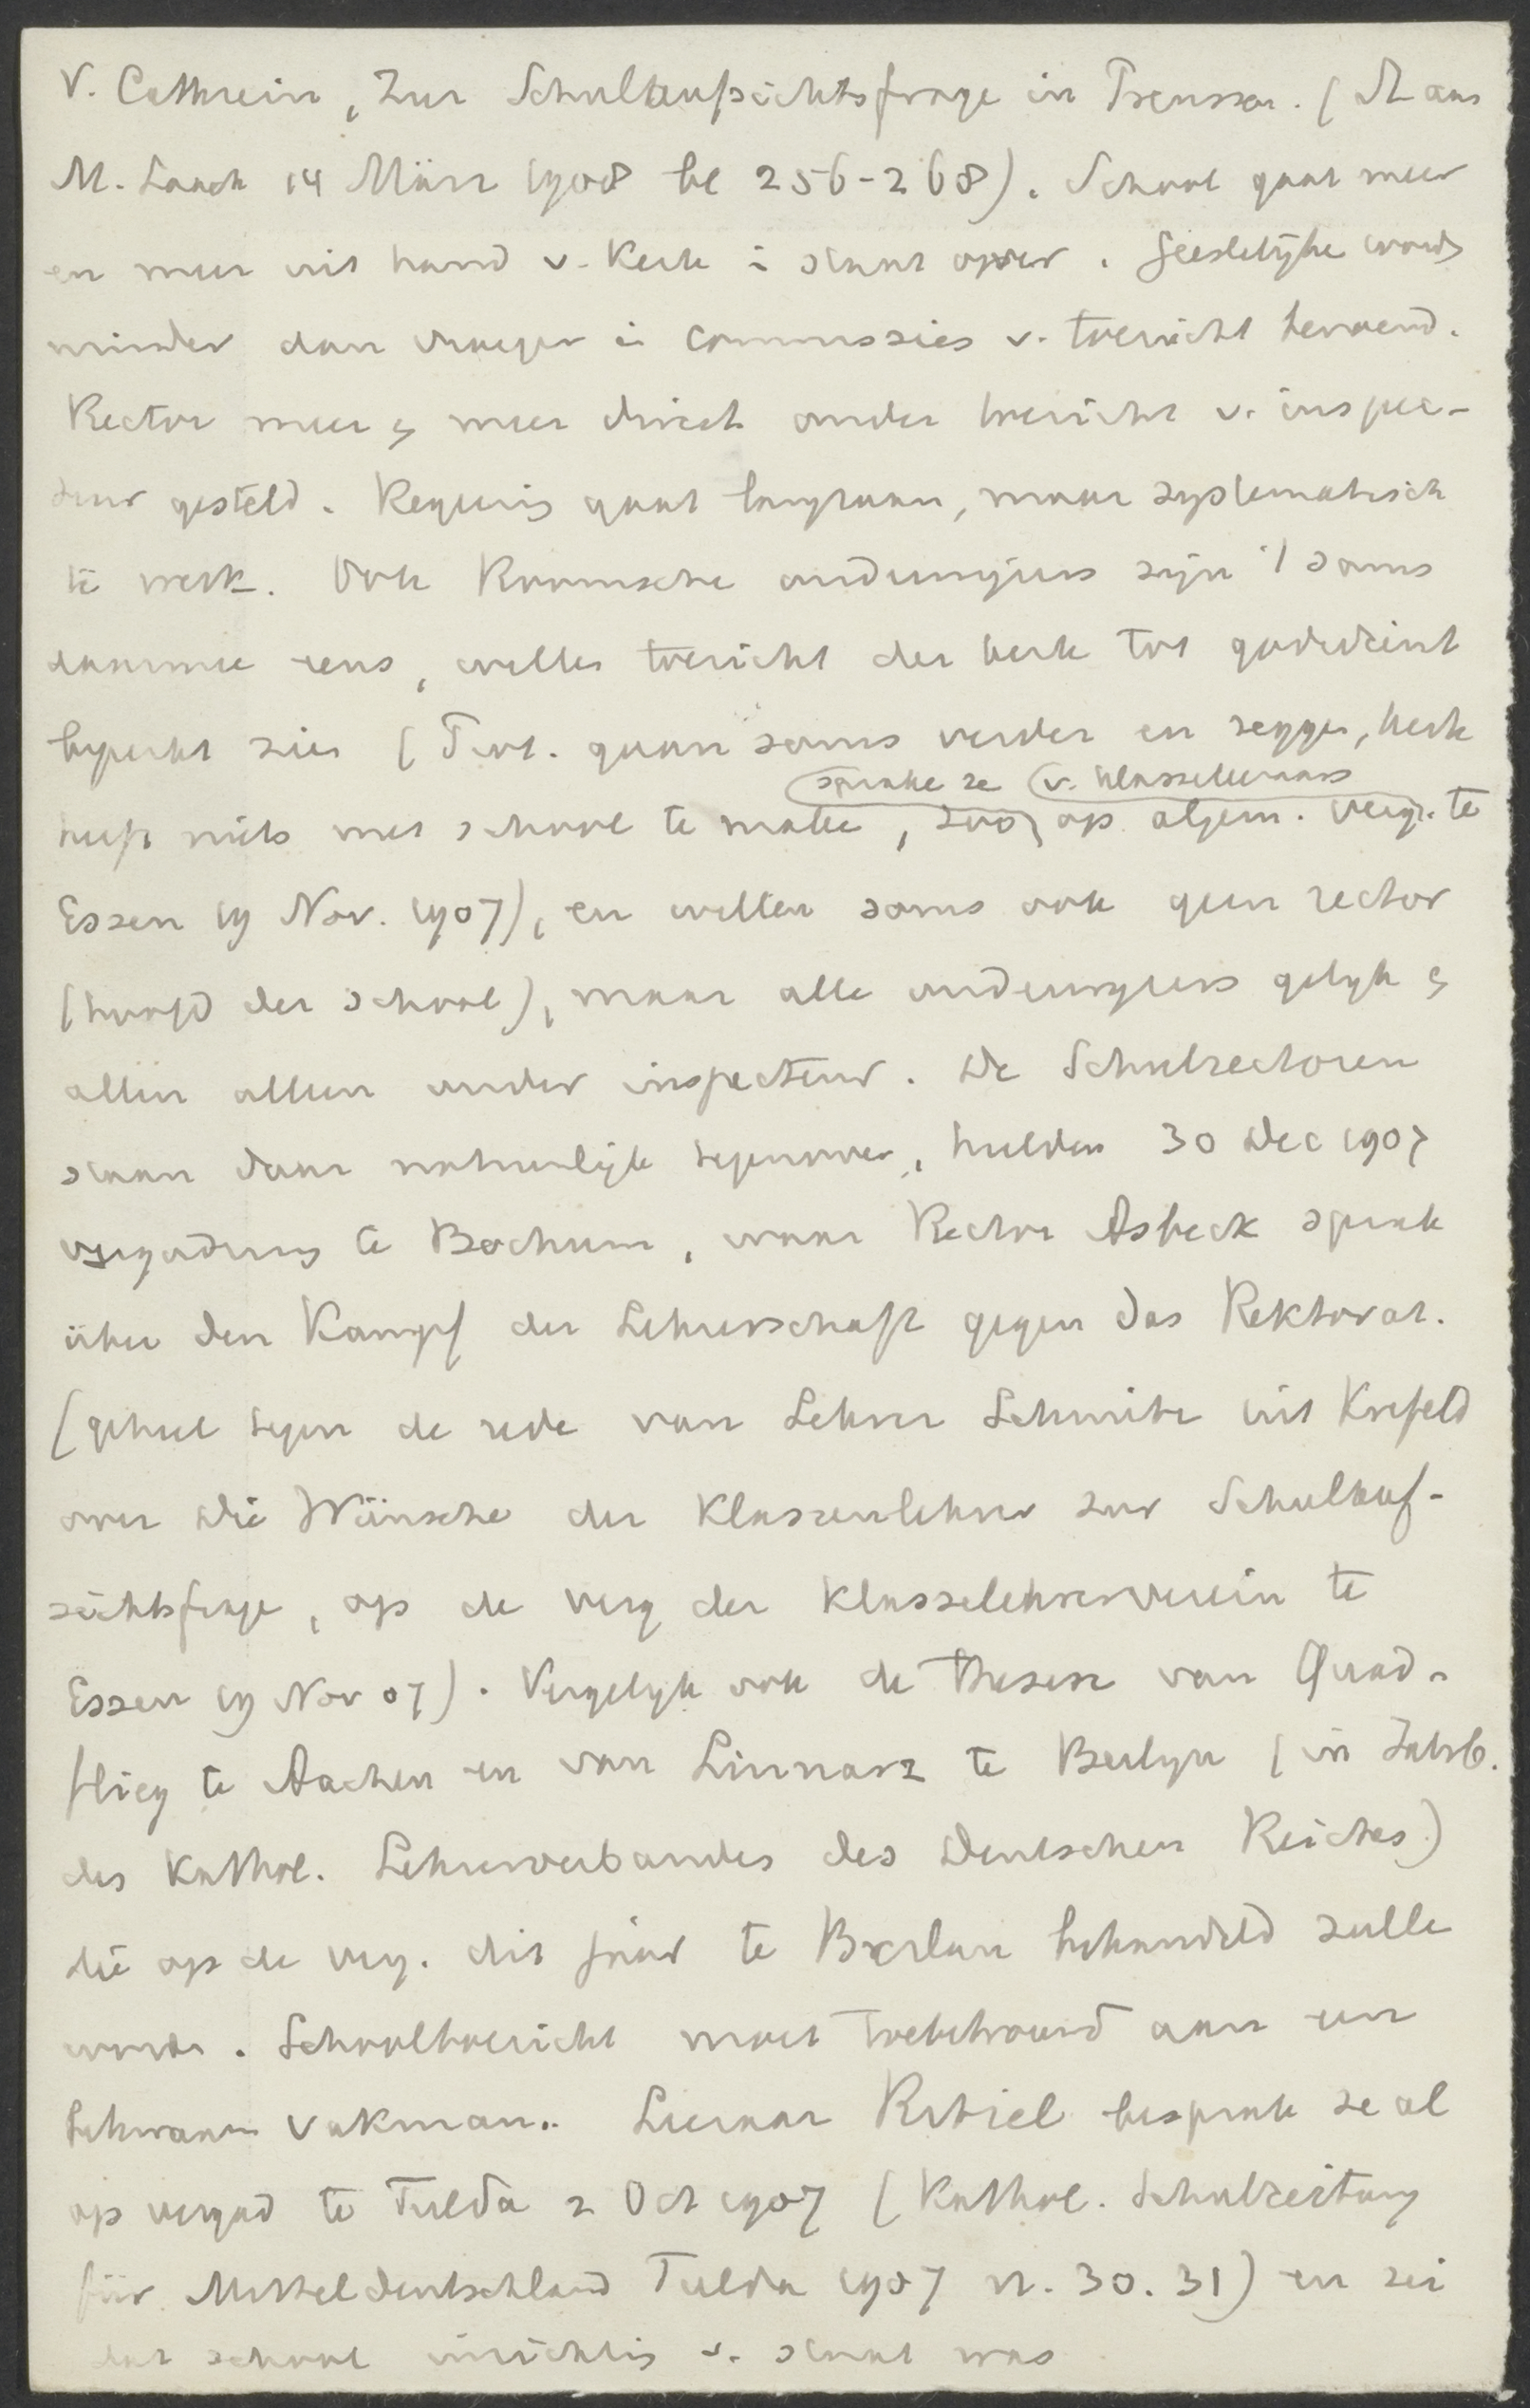 V. Cathrein, Zur Schulaufsichtsfrage in Preussen. (St aus
M. Laach 14 März 1908 bl 256-268). School gaat meer
en meer uit hand v. kerk i staat over. Geestelijke word
minder dan vroeger i commissies v. toezicht benoemd.
Rector meer en meer direct onder toezicht v. inspec-
teur gesteld. Regeering gaat langzaam, maar systematisch
te werk. Ook Roomsche onderwijzers zijn 't soms
daarmee eens, willen toezicht der kerk tot godsdienst
beperkt zien (Prot. gaan soms verder en zeggen, kerk
sprake ze v. klasseleeraars
heeft niets met school te make, zoo op algem. verg. te
Essen 19 Nov. 1907), en willen soms ook geen rector
(hoofd der school), maar alle onderwijzers gelijk en
alleen onder inspecteur. De Schulrectoren
staan daar natuurlijk tegenover, hielden 30 Dec 1907
vergadering te Bochum, waar Rector Asbeck sprak
über den Kampf der Lehrerschaft gegen das Rektorat.
(geheel tegen de rede van Lehrer Schmitz uit Krefeld
over Die Wünsche der Klassenlehrer zur Schulauf-
sichtsfrage, op de verg der Klasselehrerverein te
Essen 19 Nov 07). Vergelijk ook de Thesen van Quad-
flieg te Aachen en van Linnarz te Berlijn (in Jahrb.
des Kathol. Lehrerverbandes des Deutschen Reiches)
die op de verg. dit jaar te Breslau behandeld zulle
worde. Schooltoezicht moet toebetrouwd aan een
bekwaam vakman.. Rektiel besprak ze al
op vergad te Fulda 2 Oct 1907 (Kathol. Schulzeitung
für Mitteldeutschland Fulda 1907 n. 30. 31) en zei
dat school inrichtig v. staat was